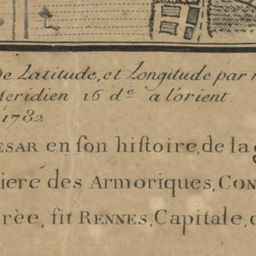 de Latitude, et Longitude par
Meridien 16 de a l'orient
1782
ESAR en son histoire, de la
iere des Armoriques, CON
rèe, fit RENNES, Capitale,